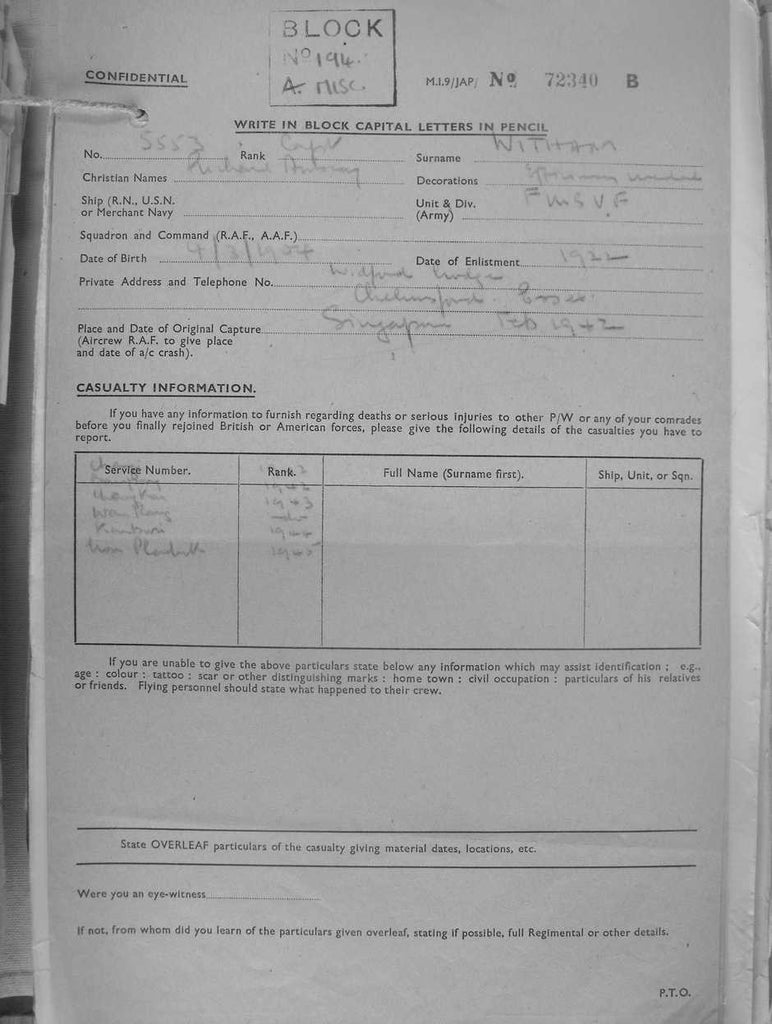 BLOCK
No 194.
A. MISC.
CONFIDENTIAL
M.I.9/JAP/ No 72340 B
WRITE IN BLOCK CAPITAL LETTERS IN PENCIL
No. 5553 Rank Capt Surname WITHAM
Christian Names Richard Decorations
Ship (R.N., U.S.N. or Merchant Navy Unit & Div. (Army) FMSVF
Squadron and Command (R.A.F., A.A.F.)
Date of Birth 4/3/1904 Date of Enlistment 1922
Private Address and Telephone No. Widford Lodge
Chelmsford. Essex.
Place and Date of Original Capture Singapore Feb 1942
(Aircrew R.A.F. to give place
and date of a/c crash).
CASUALTY INFORMATION.
If you have any information to furnish regarding deaths or serious injuries to other P/W or any of your comrades
before you finally rejoined British or American forces, please give the following details of the casualties you have to
report.
Service Number. Rank. Full Name (Surname first). Ship, Unit, or Sqn.
1942
1943
-do-
1944
1945
If you are unable to give the above particulars state below any information which may assist identification ; e.g.,
age : colour : tattoo : scar or other distinguishing marks : home town : civil occupation : particulars of his relatives
or friends. Flying personnel should state what happened to their crew.
State OVERLEAF particulars of the casualty giving material dates, locations, etc.
Were you an eye-witness
If not, from whom did you learn of the particulars given overleaf, stating if possible, full Regimental or other details.
P.T.O.